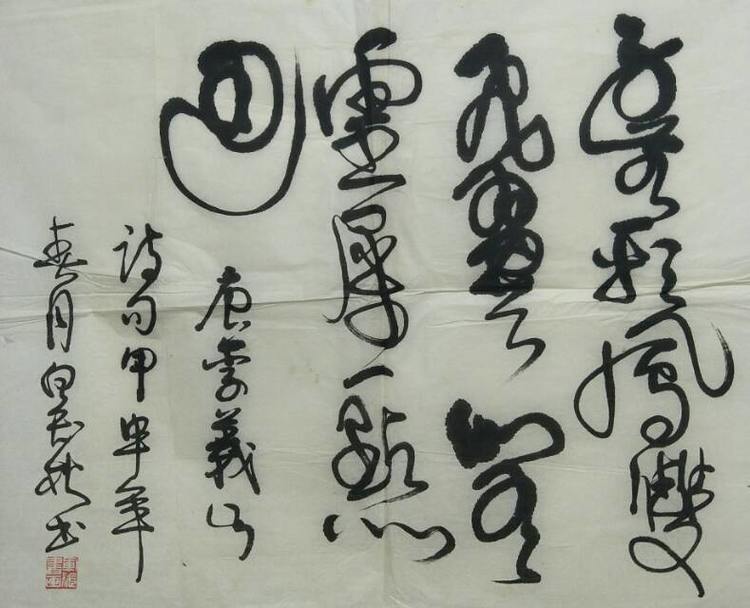 身無彩鳳雙
飛翼心有
靈犀一點
通
唐李義山
詩句甲申年
春月白書